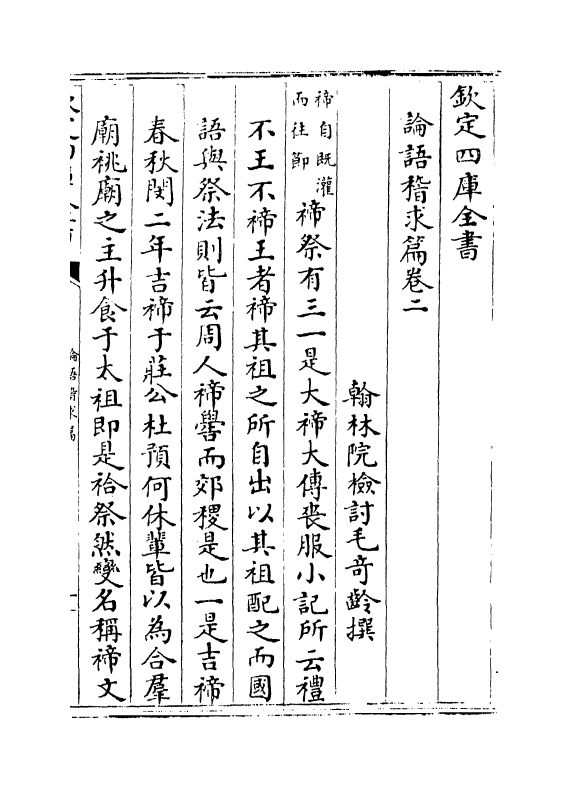 欽定四庫全書
論語稽求篇卷二
翰林院檢討毛奇齡撰
禘自既灌
而往節
禘祭有三一是大禘大傳喪服小記所云禮
不王不禘王者禘其祖之所自出以其祖配之而國
語與祭法則皆云周人禘嚳而郊稷是也一是吉禘
春秋閔二年吉禘于莊公杜預何休輩皆以為合羣
廟祧廟之主升食于太祖即是祫祭然變名稱禘文
論語稽求篇